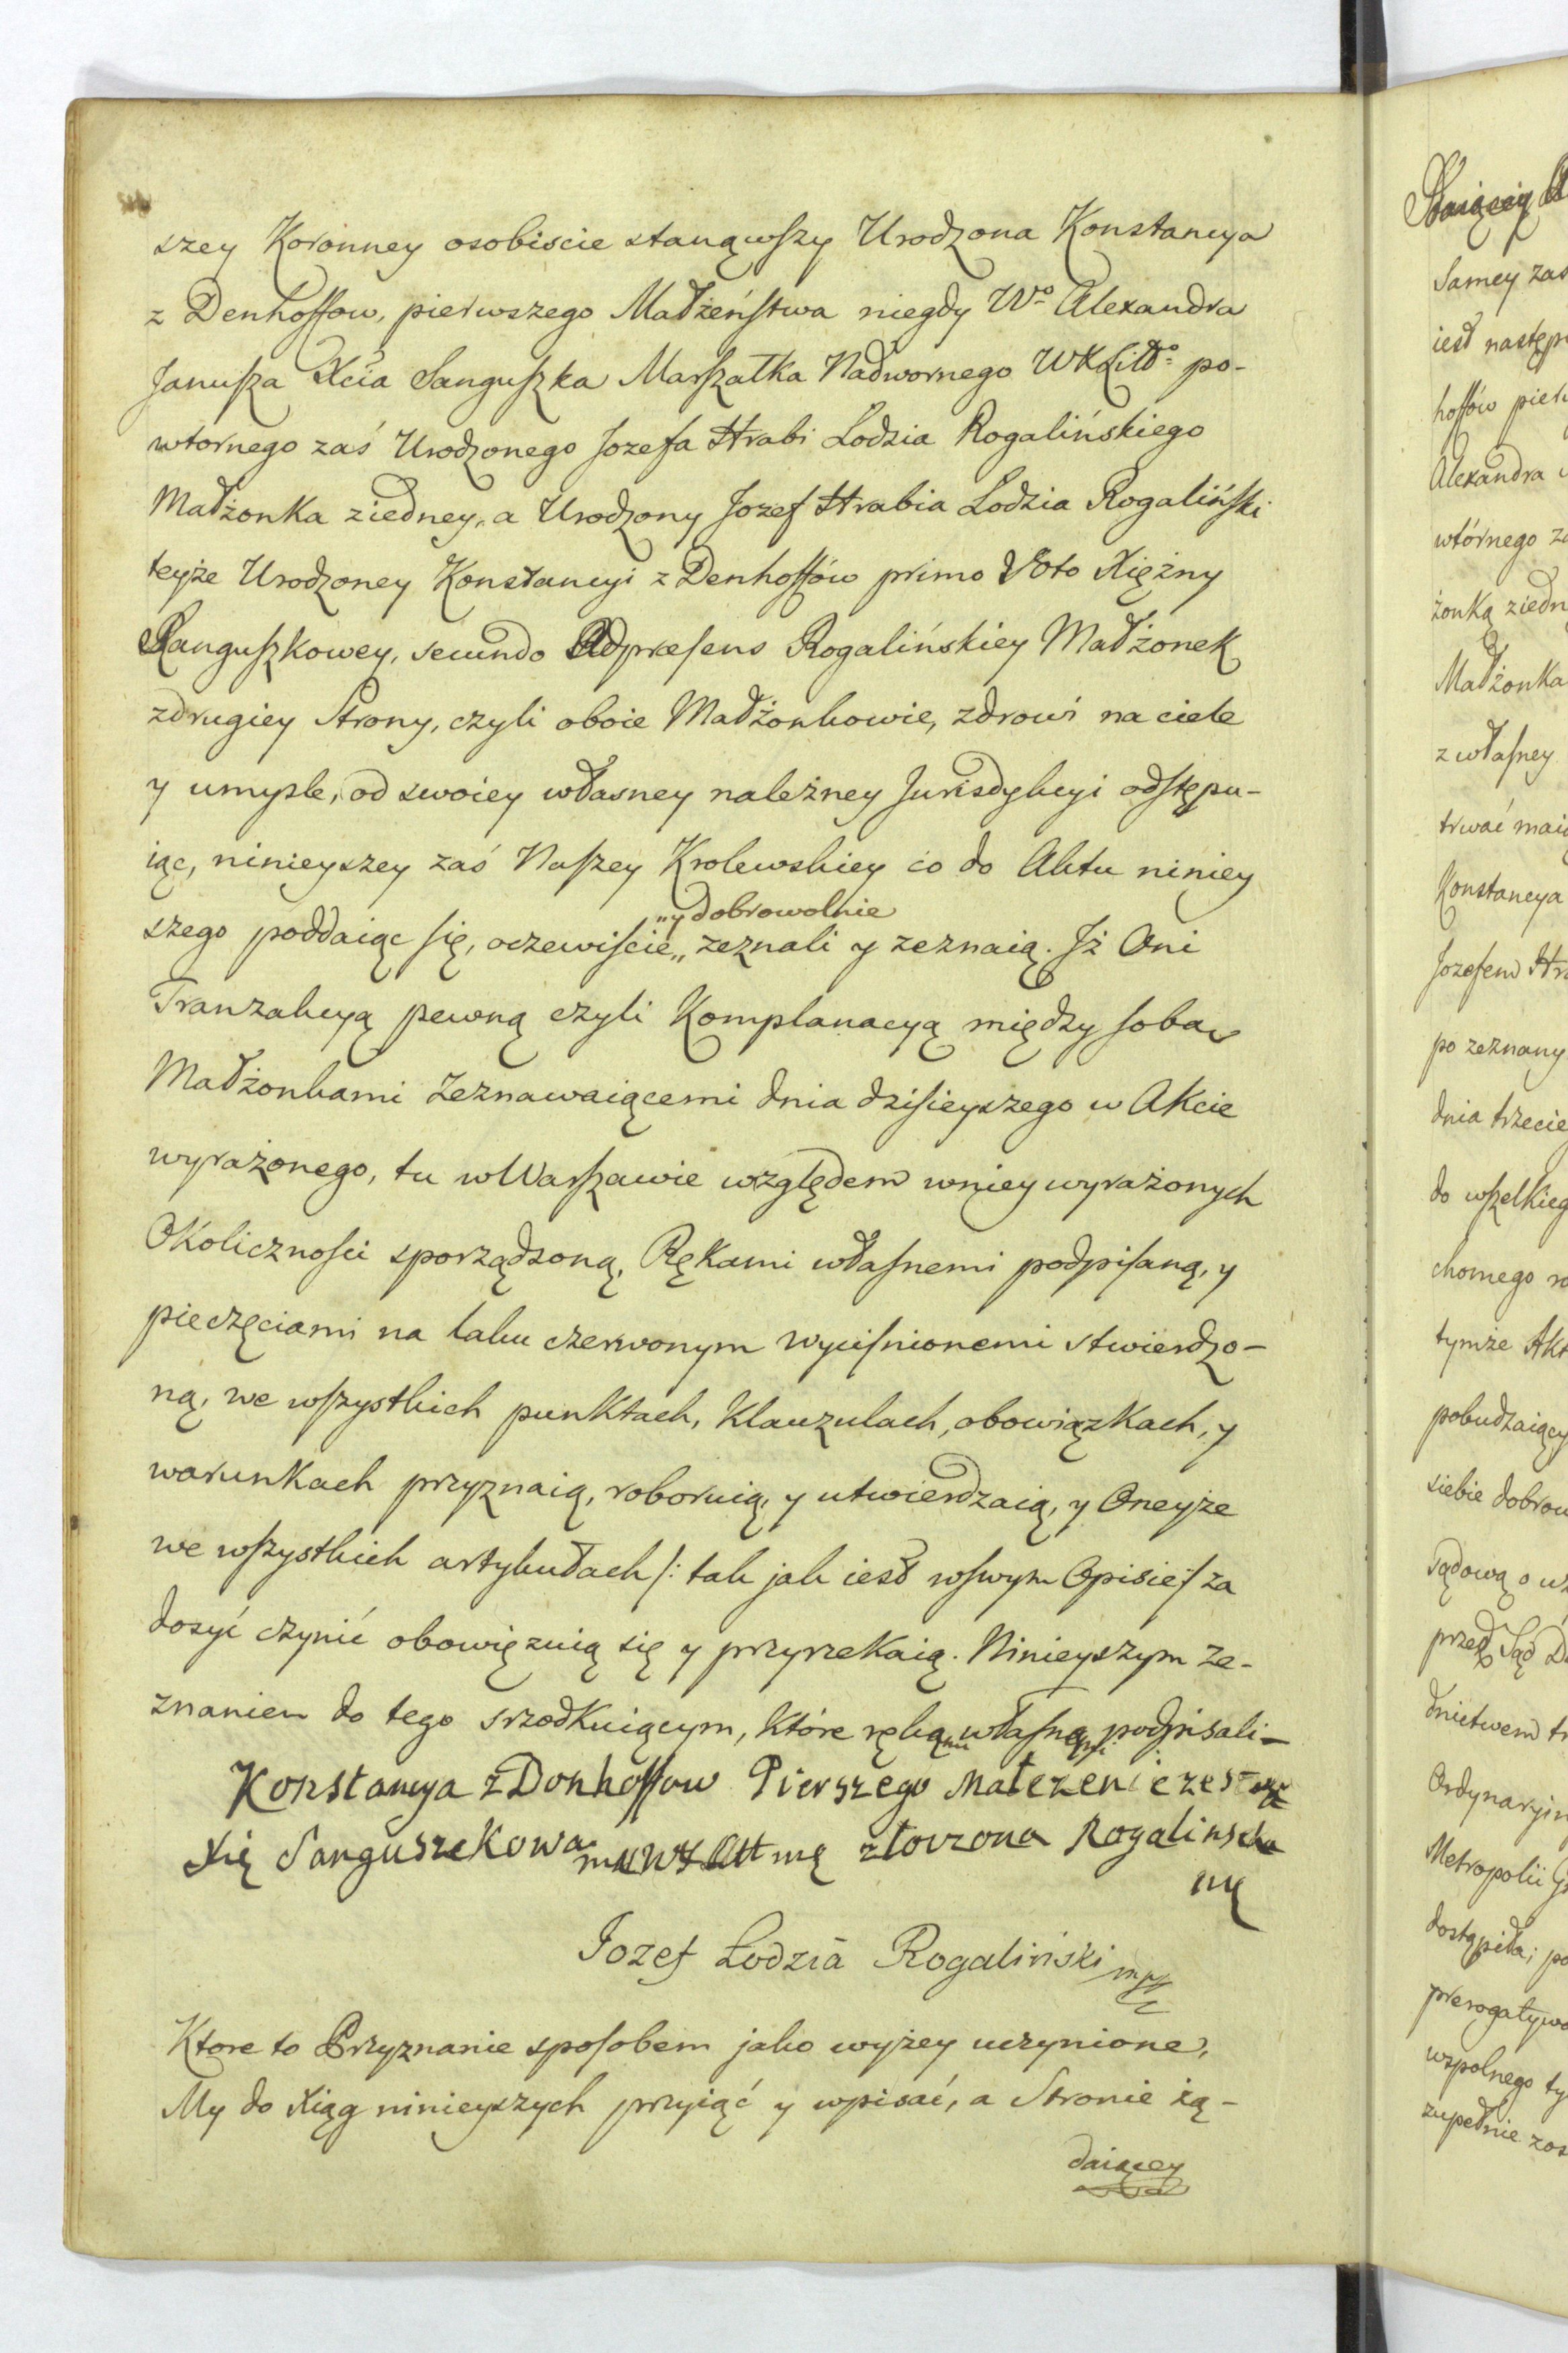 szey Koronney osobiscie stanąwszy Urodzona Konstancya
z Denhoffow, pierwszego Małżeństwa niegdy Wo Alexandra
Janusza Xcia Sanguszka Marszałka Nadwornego WXLitto po-
wtornego zaś Urodzonego Jozefa Hrabi Lodzia Rogalińskiego
Małżonka ziedney, a Urodzony Jozef Hrabia Lodzia Rogaliński
teyże Urodzoney Konstancyi z Denhoffów primo Voto Xiężny
Sanguszkowey, secundo Adpraesens Rogalińskiey Małżonek
zdrugiey Strony, czyli oboie Małżonkowie, zdrowi na ciele
y umysle, od swoiey własney należney Jurisdykcyi odstępu-
iąc, ninieyszey zaś Naszey Krolewskiey co do Aktu niniey
szego poddaiąc się, oczewiście „y dobrowolnie„ zeznali y zeznaią. Jż Oni
Tranzakcyą pewną czyli Komplanacyą między sobą
Małżonkami Zeznawaiącemi dnia dzisieyszego w Akcie
wyrażonego, tu w Warszawie względem wniey wyrażonych
Okoliczności sporządzoną, Rękami własnemi podpisaną, y
pieczęciami na laku czerwonym wycisnionemi stwierdzo-
ną, we wszystkich punktach, Klauzulach, obowiązkach, y
warunkach przyznaią, roboruią, y utwierdzaią, y Oneyże
we wszystkich artykułach /: tak jak iest wswym Opisie :/ za
dosyć czynić obowięzuią się y przyrzekaią. Ninieyszym ze-
znaniem do tego srzodkuiącym, które rękami własnemi podpisali-
Konstancya z Donhoffow Pierszego
Xię Sanguszekowa złorzona Rogalinska
mę
Jozef Łodzia Rogaliński mpp
Ktore to Przyznanie sposobem jako wyżey uczynione,
My do Xiąg ninieyszych przyiąć y wpisać, a Stronie żą-
daiącey
Samey zas
iest następu
hoffów pierw
Alexandra
wtórnego za
żonką ziedn
Małżonka
z własney
trwać maią
Konstancya
Jozefem Hra
po zeznany
dnia trzecie
do wszelkieg
chomego
tymże Akt
pobudzaiący
siebie dobrow
sądową o
przed Sąd
dnictwem
Ordynaryin
Metropolii
dostąpiła; po
prerogatywo
wspolnego ty
zupełnie zos